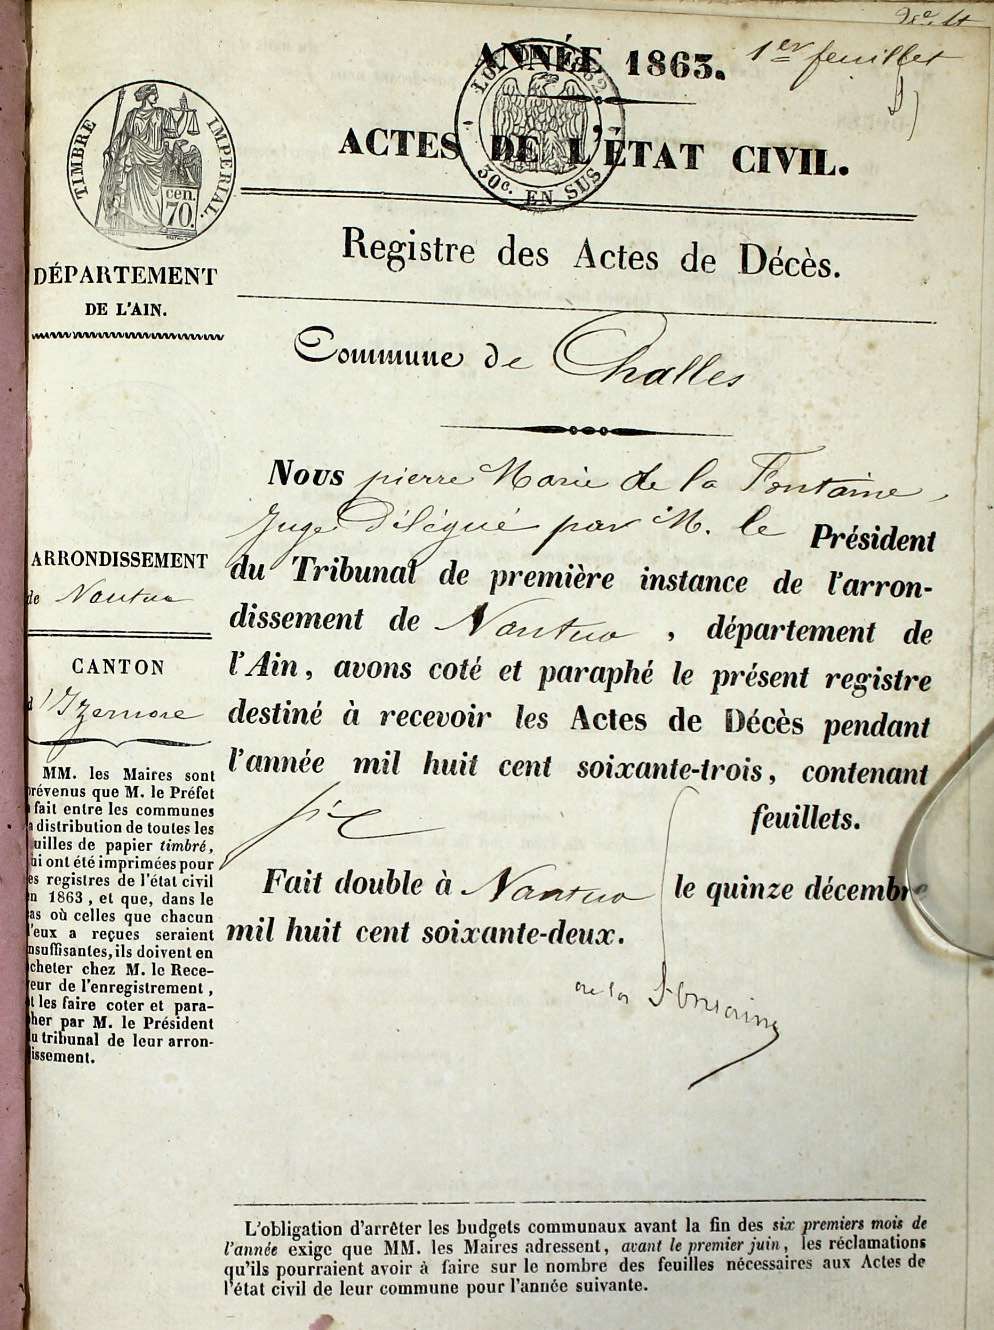 1er feuillet
ANNÉE 1863.
LOI DE 1862
30c. EN SUS
TIMBRE IMPERIAL.
cen.
70.
ACTES DE L'ÉTAT CIVIL.
Registre des Actes de Décès.
DÉPARTEMENT
DE L'AIN.
Commune de Challes
Nous pierre Marie de la Fontaine,
Juge Délégué par M. le Président
du Tribunal de première instance de l'arron-
dissement de Nantua, département de
l'Ain, avons coté et paraphé le présent registre
destiné à recevoir les Actes de Décès pendant
l'année mil huit cent soixante-trois, contenant
six feuillets.
Fait double à Nantua le quinze décembre
mil huit cent soixante-deux.
de la Fontaine
ARRONDISSEMENT
de Nantua
CANTON
d'Izernore
MM. les Maires sont
prévenus que M. le Préfet
a fait entre les communes
la distribution de toutes les
feuilles de papier timbré,
qui ont été imprimées pour
les registres de l'état civil
en 1863, et que, dans le
cas où celles que chacun
d'eux a reçues seraient
insuffisantes, ils doivent en
acheter chez M. le Rece-
veur de l'enregistrement,
et les faire coter et para-
pher par M. le Président
du tribunal de leur arron-
dissement.
L'obligation d'arrêter les budgets communaux avant la fin des six premiers mois de
l'année exige que MM. les Maires adressent, avant le premier juin, les réclamations
qu'ils pourraient avoir à faire sur le nombre des feuilles nécessaires aux Actes de
l'état civil de leur commune pour l'année suivante.